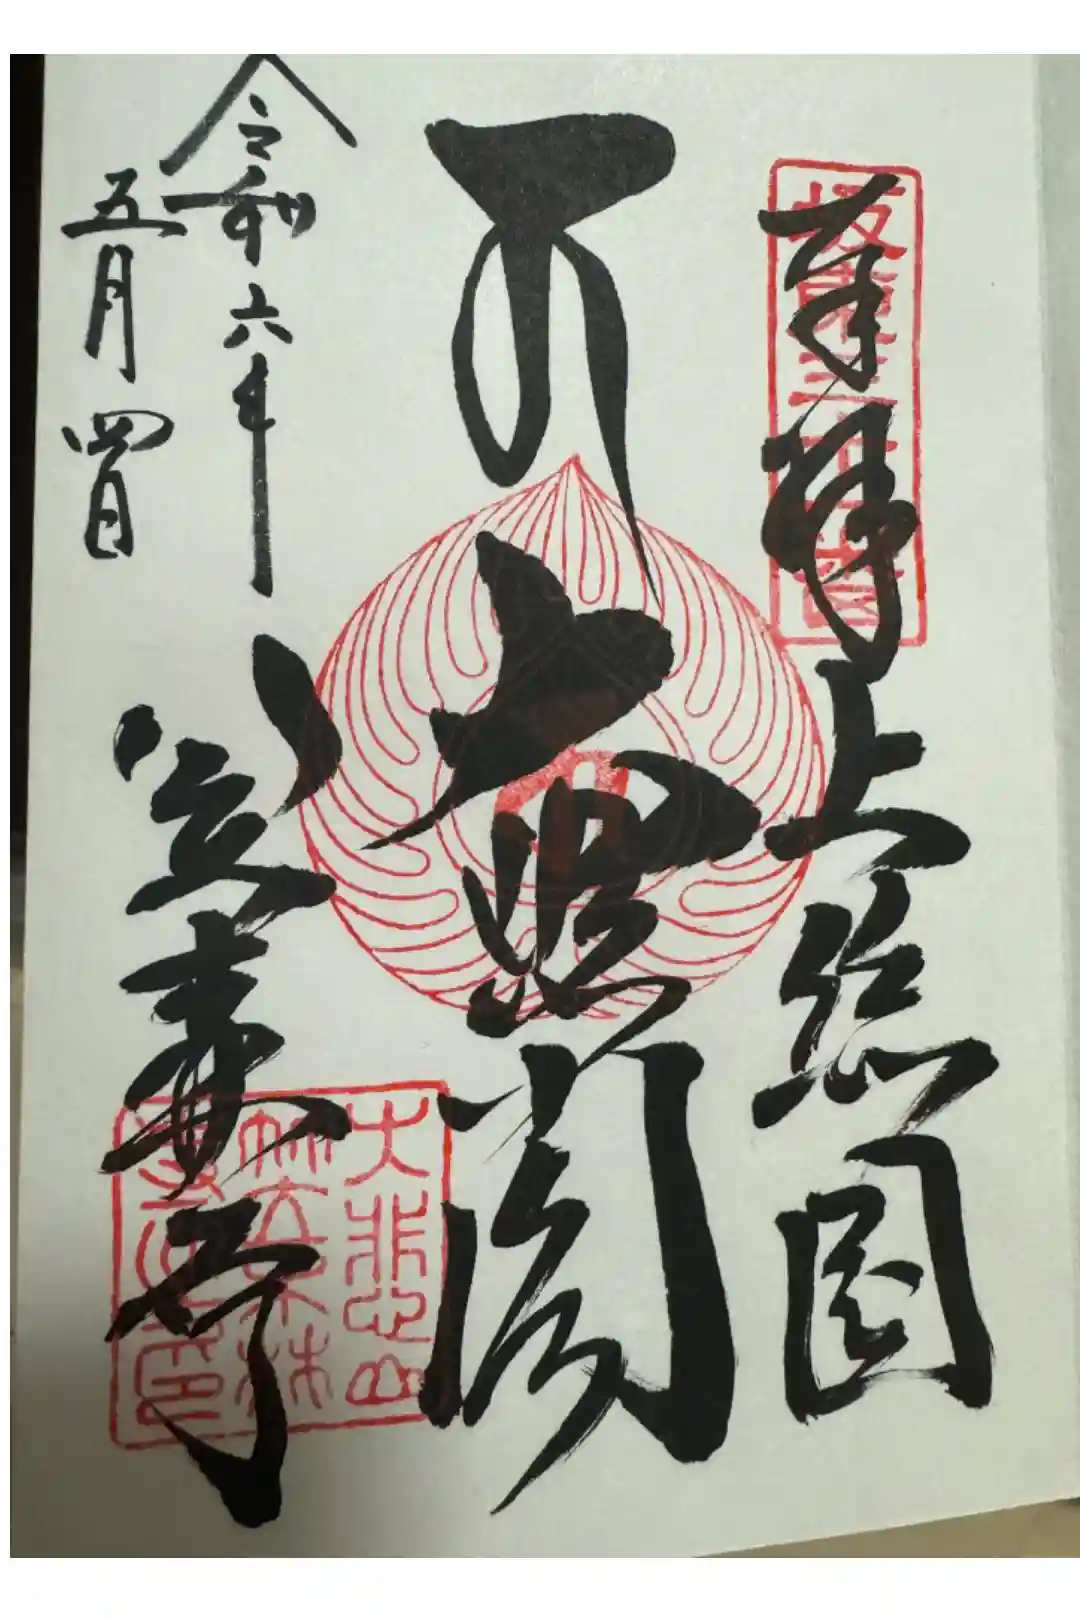 坂東三十一番
奉拝 上総国
大悲閣
令和六年
五月四日
笠森寺
大悲山
笠森